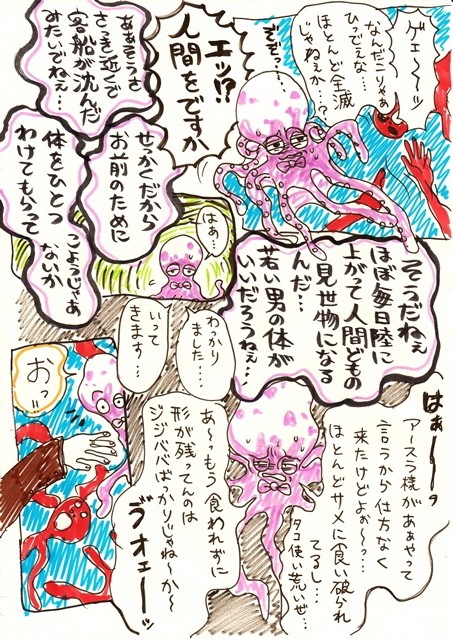 ゲェ〜ッ
なんだこりゃぁ
ひってぇな…
ほとんど全滅
じゃねぇか…?
エッ!?
人間をですか
あぁそうさ
さっき近くで
客船が沈んだ
みたいでねぇ…
せっかくだから
お前のために
体をひとつ
わけてもらって
こようじゃあ
ないか
はぁ…
そうだねぇ
ほぼ毎日陸に
上がって人間どもの
見世物になる
んだ…
若い男の体が
いいだろうねぇ…
わっかり
ました…
いって
きます…
はぁ〜〜っ
アースラ様があぁやって
言うから仕方なく
来たけどよぉ〜?…
ほとんどサメに食い破られ
てるし…
タコ使い荒いぜ…
あ〜もう食われずに
形が残ってんのは
ジジババばっかりじゃね〜か〜
ヴォエーッ
おッ